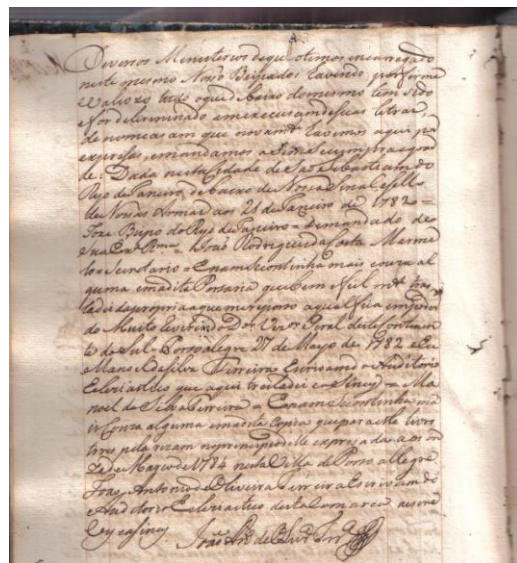 Diversos Ministerios de que o temos encarregado
neste mesmo Novo Bispado, e havendo por firme
e valiozo tudo o que debaixo do mesmo tem sido
e for determinado em execusam de suas letras,
de nomeasam que novam.te havemos aqui por
expresas, e mandamos a Sim se cumpra e guar
de. Dada nesta Cidade de Sao Sebastiam do
Ryo de Janeiro, debaixo de Nosso Sinal e Sello
de Nosas Armas aos 21 de Janeiro de 1782 =
Joze Bispo do Ryo de Janeiro = Demandado de
Sua Ex.a Rma. = Joao Rodrigues da Costa Marme
lo Secretario = E nam Se continha mais couza al
guma em a dita Portaria que bem e fiel m.te tras
ladei da propria a que me reporto a qual fica em poder
do Muito Reverendo D.or Vig.o Geral deste Continen
te do Sul. Porto alegre 27 de Mayo de 1782 e Eu
Manoel da Silva Ferreira Escrivam do Auditorio
Ecleziastico que aqui trasladei e asiney = Ma
noel da Silva Ferreira = E nam Se continha ma
is Couza alguma em a dita Copia que para este livro
pela rezam no principio delle expresada aos on
ze de Março de 1784 nesta Villa de Porto allegre
Joao Antonio de Oliveira Ferreira Escrivam do
Auditorio Ecleziastico desta Comarca
e asiney